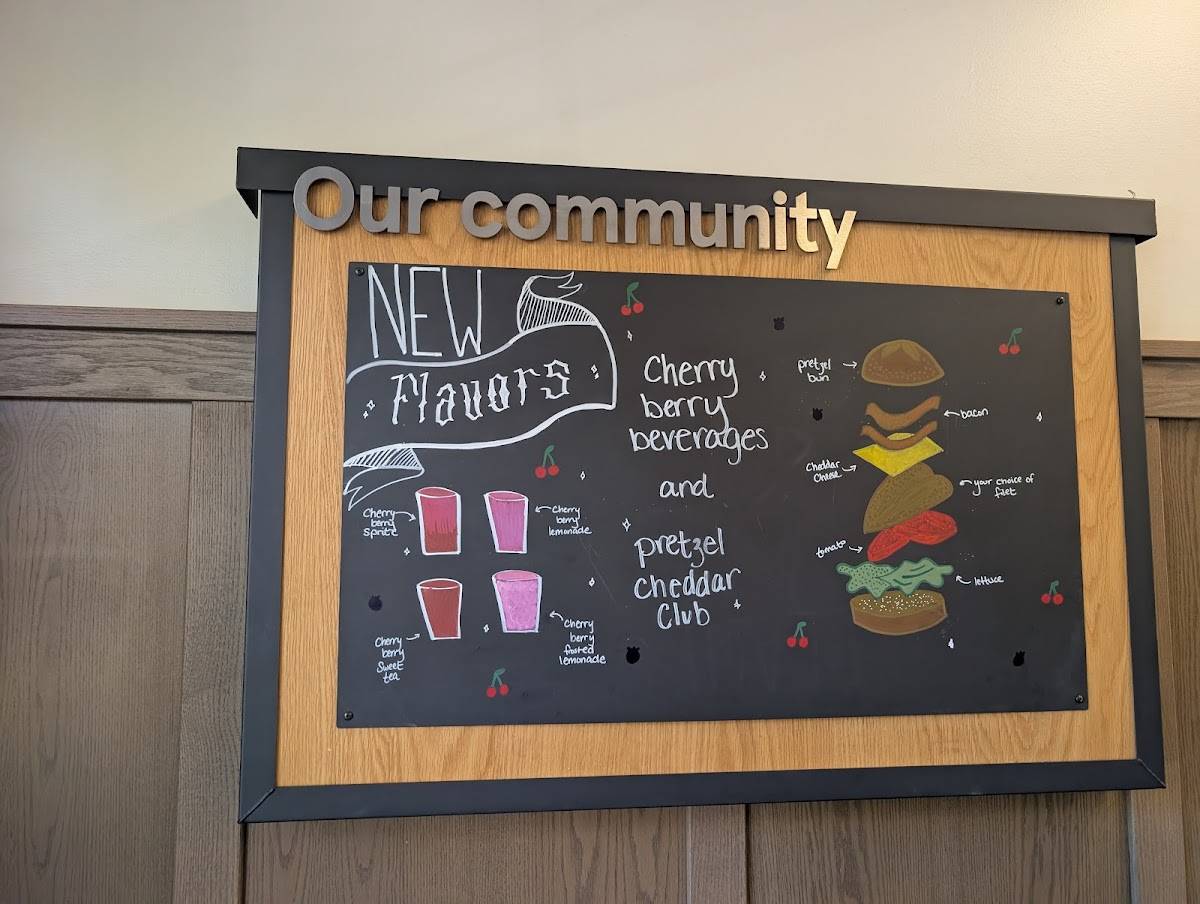 Our community
NEW
Flavors
Cherry
berry
spritz
Cherry
berry
lemonade
Cherry
berry
Sweet
tea
Cherry
berry
frosted
lemonade
Cherry
berry
beverages
and
pretzel
cheddar
Club
pretzel
bun
bacon
Cheddar
Cheese
your choice of
filet
tomato
lettuce